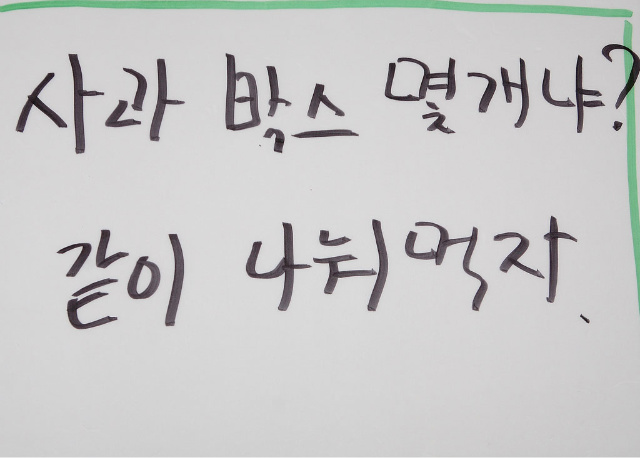 사과 박스 몇개냐?
같이 나눠먹자.